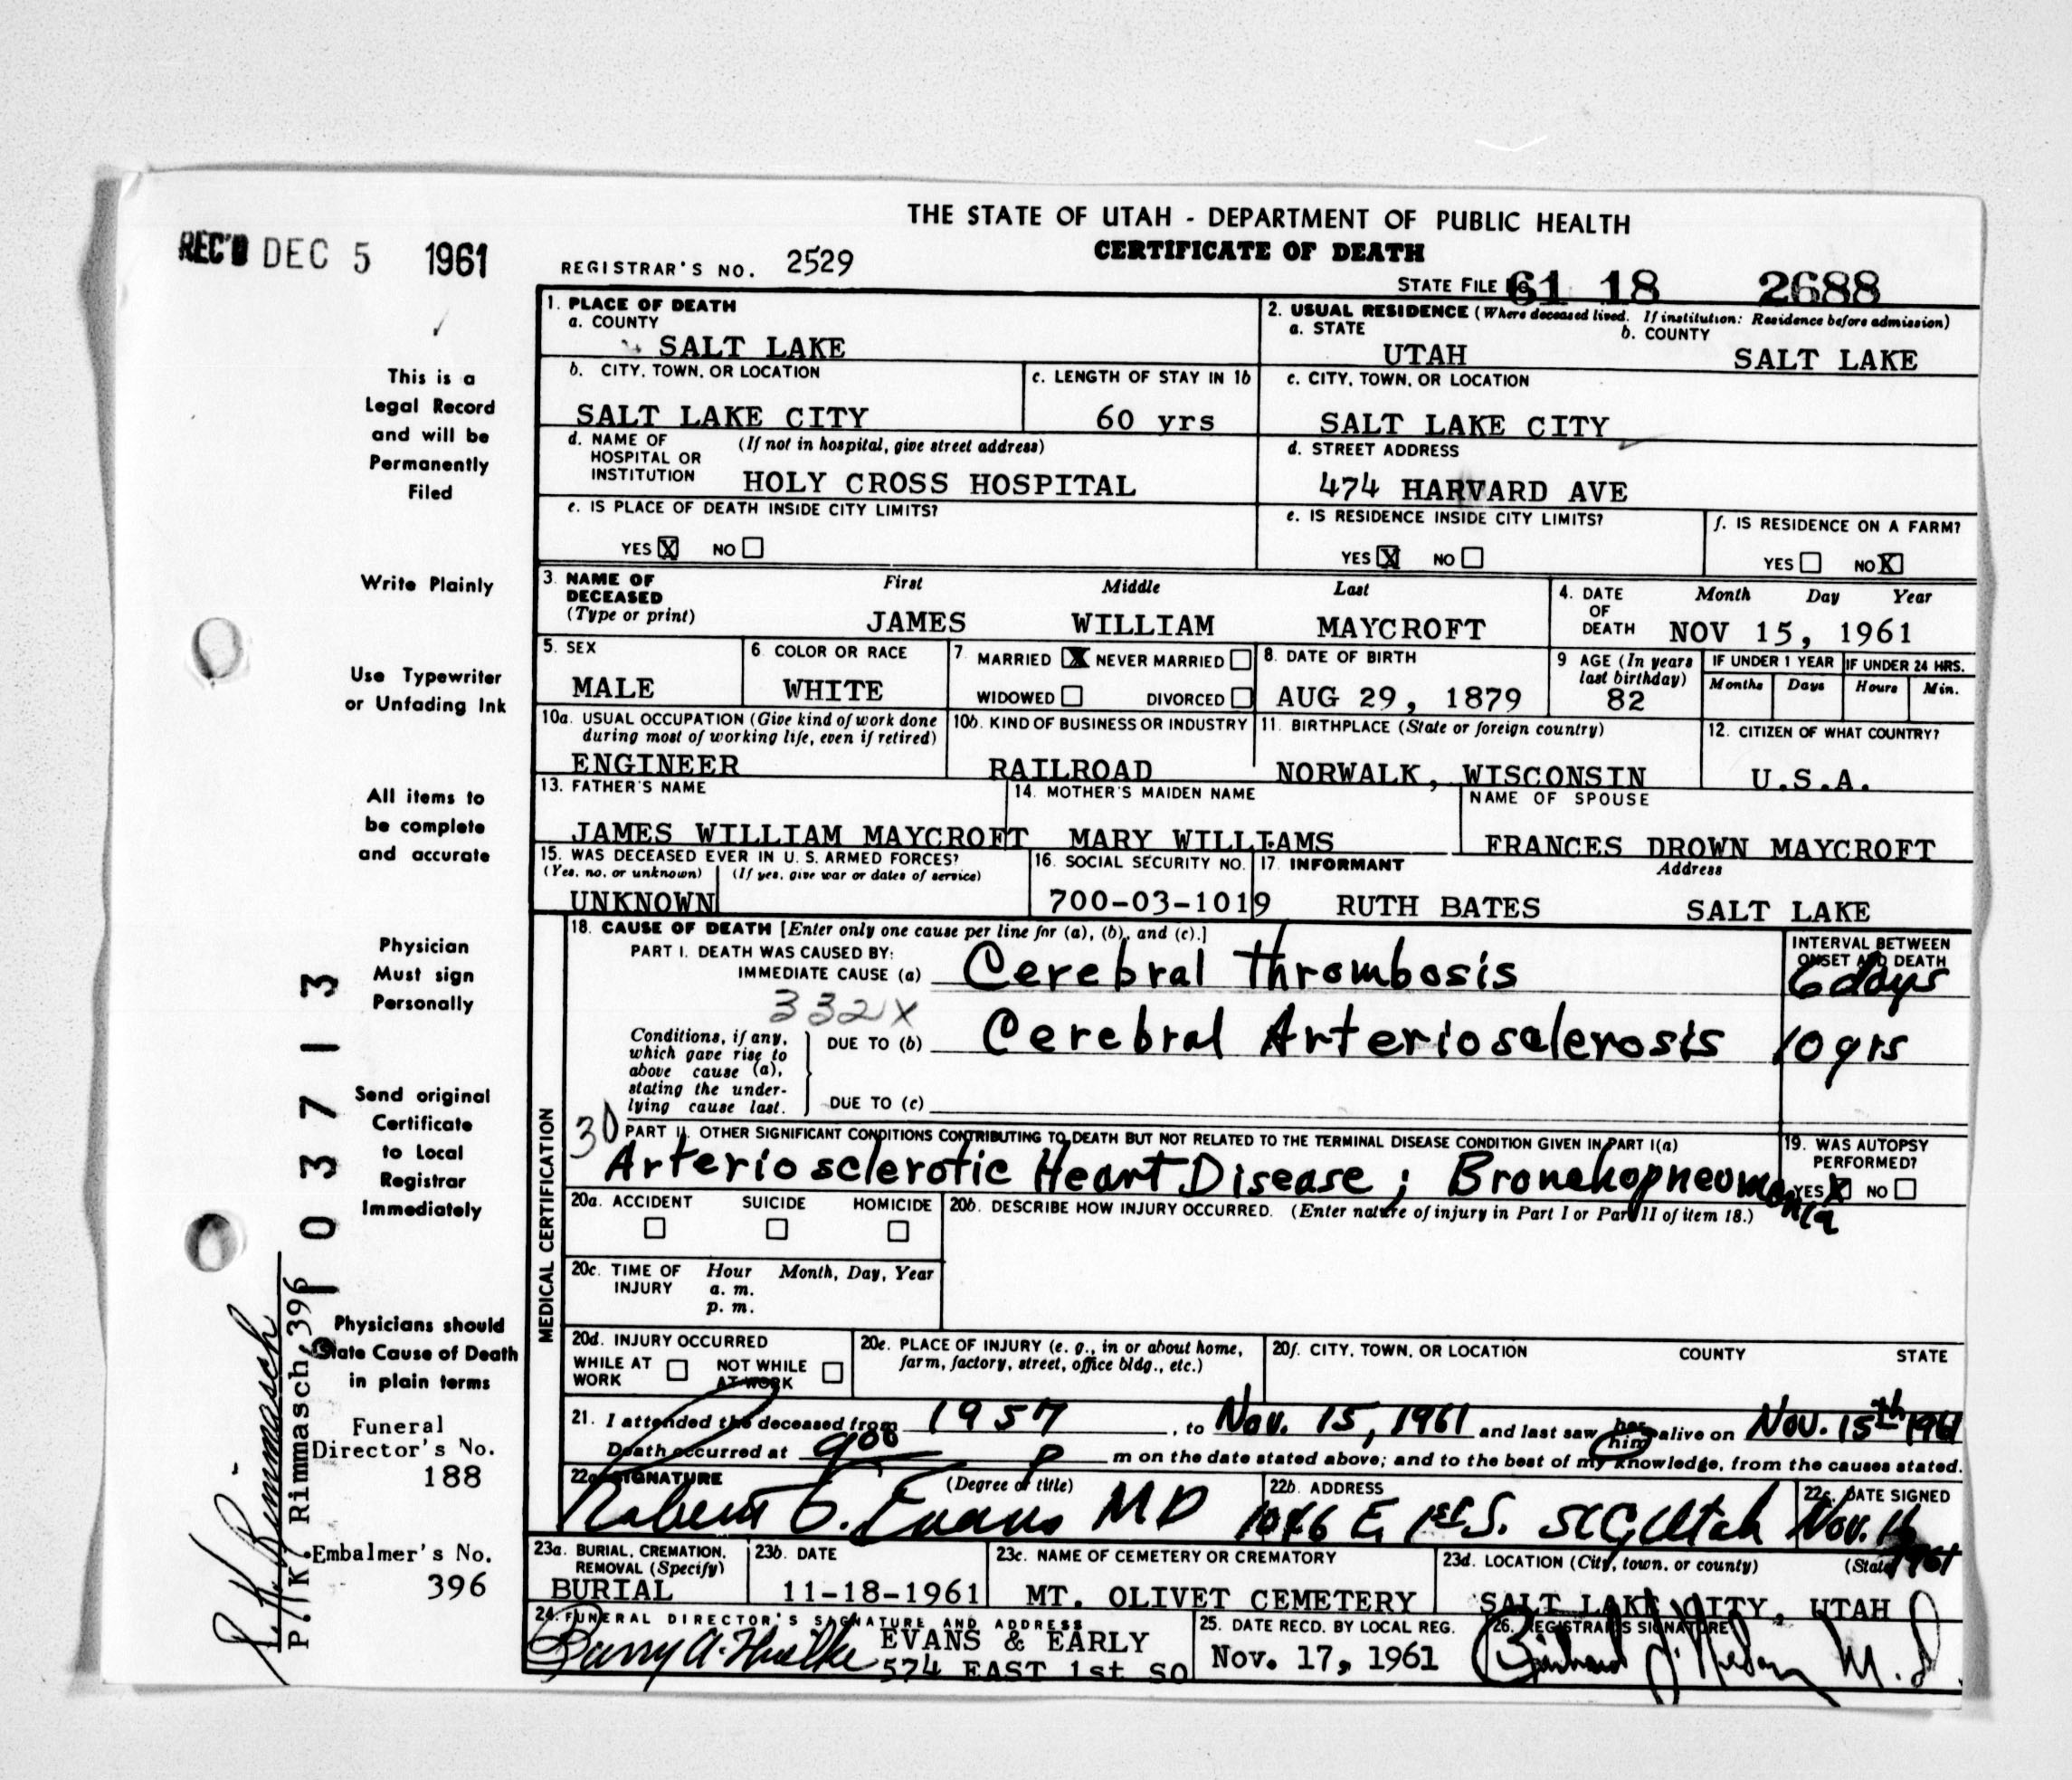 THE STATE OF UTAH - DEPARTMENT OF PUBLIC HEALTH
CERTIFICATE OF DEATH
REC'D DEC 5 1961
REGISTRAR'S NO. 2529
STATE FILE 61 18 2688
1. PLACE OF DEATH
a. COUNTY
SALT LAKE
2. USUAL RESIDENCE (Where deceased lived. If institution: Residence before admission)
a. STATE b. COUNTY
UTAH SALT LAKE
b. CITY, TOWN, OR LOCATION
SALT LAKE CITY
c. LENGTH OF STAY IN 1b
60 yrs
c. CITY, TOWN, OR LOCATION
SALT LAKE CITY
d. NAME OF HOSPITAL OR INSTITUTION (If not in hospital, give street address)
HOLY CROSS HOSPITAL
d. STREET ADDRESS
474 HARVARD AVE
e. IS PLACE OF DEATH INSIDE CITY LIMITS?
YES X NO
e. IS RESIDENCE INSIDE CITY LIMITS?
YES X NO
f. IS RESIDENCE ON A FARM?
YES NO X
3. NAME OF DECEASED (Type or print)
First Middle Last
JAMES WILLIAM MAYCROFT
4. DATE OF DEATH Month Day Year
NOV 15, 1961
5. SEX
MALE
6. COLOR OR RACE
WHITE
7. MARRIED X NEVER MARRIED
WIDOWED DIVORCED
8. DATE OF BIRTH
AUG 29, 1879
9 AGE (In years last birthday)
82
IF UNDER 1 YEAR IF UNDER 24 HRS.
Months Days Hours Min.
10a. USUAL OCCUPATION (Give kind of work done during most of working life, even if retired)
ENGINEER
10b. KIND OF BUSINESS OR INDUSTRY
RAILROAD
11. BIRTHPLACE (State or foreign country)
NORWALK, WISCONSIN
12. CITIZEN OF WHAT COUNTRY?
U.S.A.
13. FATHER'S NAME
JAMES WILLIAM MAYCROFT
14. MOTHER'S MAIDEN NAME
MARY WILLIAMS
NAME OF SPOUSE
FRANCES DROWN MAYCROFT
15. WAS DECEASED EVER IN U.S. ARMED FORCES?
(Yes, no, or unknown) (If yes, give war or dates of service)
UNKNOWN
16. SOCIAL SECURITY NO.
700-03-1019
17. INFORMANT Address
RUTH BATES SALT LAKE
18. CAUSE OF DEATH [Enter only one cause per line for (a), (b), and (c).]
PART I. DEATH WAS CAUSED BY:
IMMEDIATE CAUSE (a) Cerebral thrombosis
INTERVAL BETWEEN ONSET AND DEATH
6 days
332X
Conditions, if any, which gave rise to above cause (a), stating the underlying cause last.
DUE TO (b) Cerebral Arteriosclerosis 10 yrs
DUE TO (c)
30
PART II. OTHER SIGNIFICANT CONDITIONS CONTRIBUTING TO DEATH BUT NOT RELATED TO THE TERMINAL DISEASE CONDITION GIVEN IN PART I(a)
Arteriosclerotic Heart Disease; Bronchopneumonia
19. WAS AUTOPSY PERFORMED?
YES X NO
20a. ACCIDENT SUICIDE HOMICIDE
20b. DESCRIBE HOW INJURY OCCURRED. (Enter nature of injury in Part I or Part II of item 18.)
20c. TIME OF INJURY Hour Month, Day, Year
a. m.
p. m.
20d. INJURY OCCURRED
WHILE AT WORK NOT WHILE AT WORK
20e. PLACE OF INJURY (e. g., in or about home, farm, factory, street, office bldg., etc.)
20f. CITY, TOWN, OR LOCATION COUNTY STATE
MEDICAL CERTIFICATION
21. I attended the deceased from 1957, to Nov. 15, 1961 and last saw her him alive on Nov. 15th 1961
Death occurred at 900 P m on the date stated above; and to the best of my knowledge, from the causes stated.
22a. SIGNATURE (Degree or title)
Robert O. Evans MD
22b. ADDRESS
1046 E. 1st S. SLC, Utah
22c. DATE SIGNED
Nov. 16 1961
23a. BURIAL, CREMATION, REMOVAL (Specify)
BURIAL
23b. DATE
11-18-1961
23c. NAME OF CEMETERY OR CREMATORY
MT. OLIVET CEMETERY
23d. LOCATION (City, town, or county) (State)
SALT LAKE CITY, UTAH
24. FUNERAL DIRECTOR'S SIGNATURE AND ADDRESS
EVANS & EARLY
574 EAST 1st SO
25. DATE RECD. BY LOCAL REG.
Nov. 17, 1961
26. REGISTRAR'S SIGNATURE
M.D.
This is a
Legal Record
and will be
Permanently
Filed
Write Plainly
Use Typewriter
or Unfading Ink
All items to
be complete
and accurate
Physician
Must sign
Personally
Send original
Certificate
to Local
Registrar
Immediately
Physicians should
State Cause of Death
in plain terms
Funeral
Director's No.
188
Embalmer's No.
396
103713
P. K. Rimmasch, 396